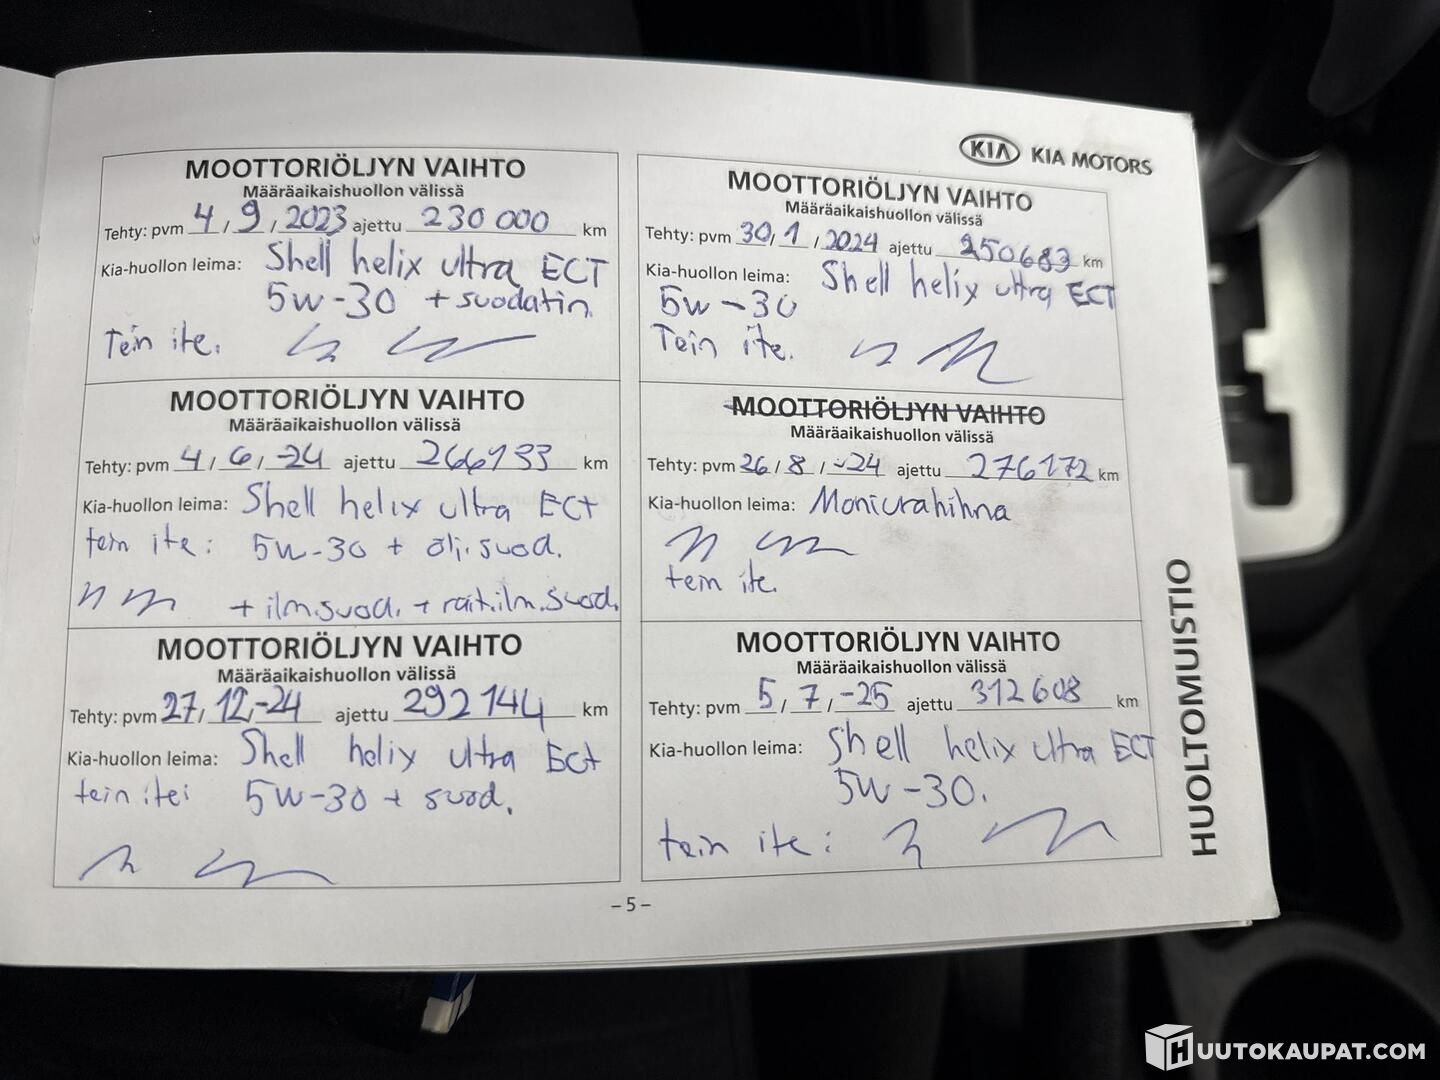 KIA KIA MOTORS
MOOTTORIÖLJYN VAIHTO
Määräaikaishuollon välissä
Tehty: pvm 4 / 9 / 2023 ajettu 230 000 km
Kia-huollon leima: Shell helix ultra ECT
5w-30 + suodatin.
Tein ite.
MOOTTORIÖLJYN VAIHTO
Määräaikaishuollon välissä
Tehty: pvm 30 / 1 / 2024 ajettu 250683 km
Kia-huollon leima: Shell helix ultra ECT
5w-30
Tein ite.
MOOTTORIÖLJYN VAIHTO
Määräaikaishuollon välissä
Tehty: pvm 4 / 6 / -24 ajettu 266133 km
Kia-huollon leima: Shell helix ultra ECT
tein ite: 5w-30 + ölj.suod.
+ ilm.suod. + rait.ilm.suod.
MOOTTORIÖLJYN VAIHTO
Määräaikaishuollon välissä
Tehty: pvm 26 / 8 / -24 ajettu 276172 km
Kia-huollon leima: Moniurahihna
tein ite.
MOOTTORIÖLJYN VAIHTO
Määräaikaishuollon välissä
Tehty: pvm 27 / 12 / -24 ajettu 292144 km
Kia-huollon leima: Shell helix ultra ECT
tein ite: 5w-30 + suod.
MOOTTORIÖLJYN VAIHTO
Määräaikaishuollon välissä
Tehty: pvm 5 / 7 / -25 ajettu 312608 km
Kia-huollon leima: Shell helix ultra ECT
5w-30.
tein ite:
HUOLTOMUISTIO
– 5 –
HUUTOKAUPAT.COM